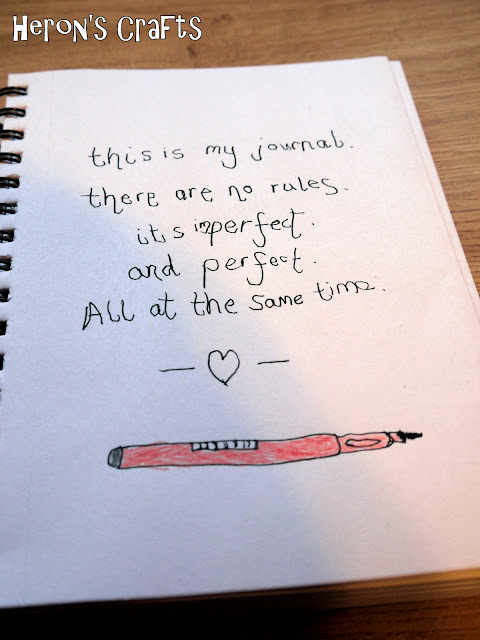 Heron's Crafts
this is my journal.
there are no rules.
it,s imperfect.
and perfect.
All at the same time.